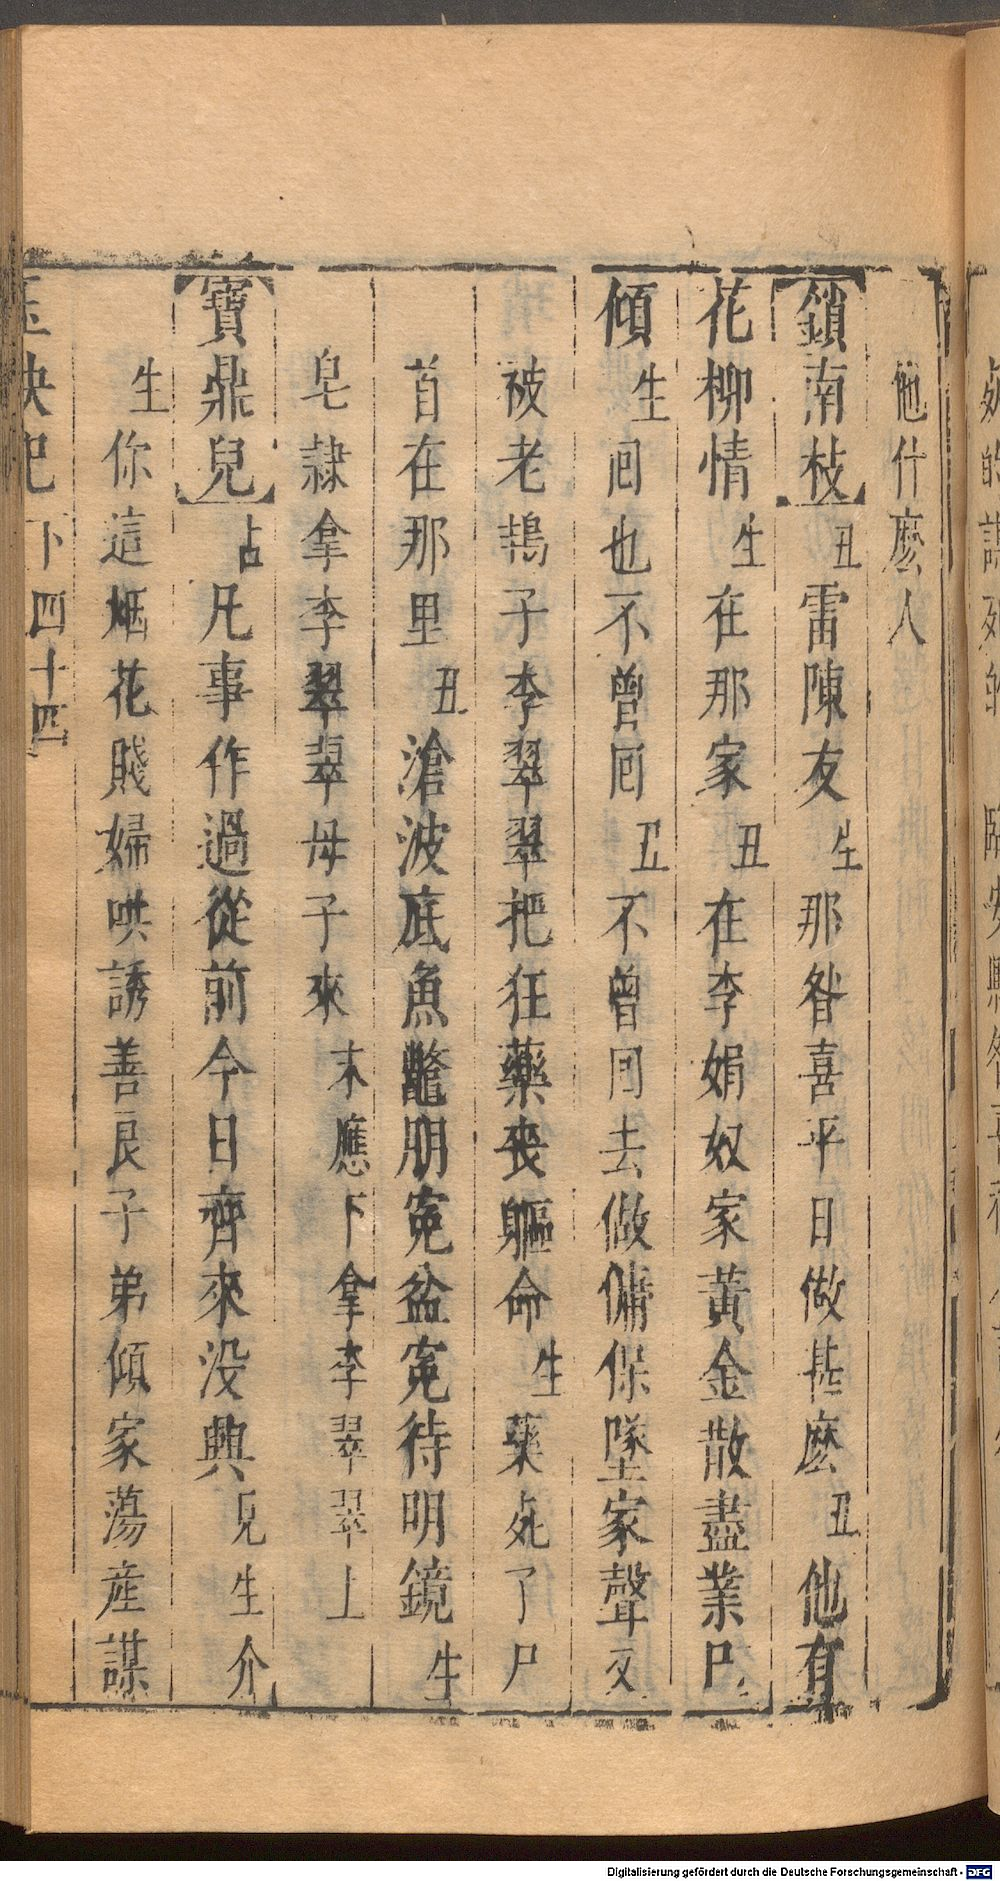 他什麽人
鎖南枝丑雷陳友生那昝喜平日做甚麽丑他有
花柳情生在那家丑在李娟奴家黄金散盡業已
傾生囘也不曾囘丑不曾囘去做傭保墜家聲又
被老鴇子李翠翠把狂藥丧軀命生藥死了尸
首在那里丑滄波底魚鼈朋寃盆寃待明鏡生
皂隷拿李翠翠母子來末應下拿李翠翠上
寳鼎兒占凡事作過從前今日齊來没興見生介
生你這烟花賤婦哄誘善良子弟傾家蕩産謀
玉玦記下四十四
Digitalisierung gefördert durch die Deutsche Forschungsgemeinschaft - DFG